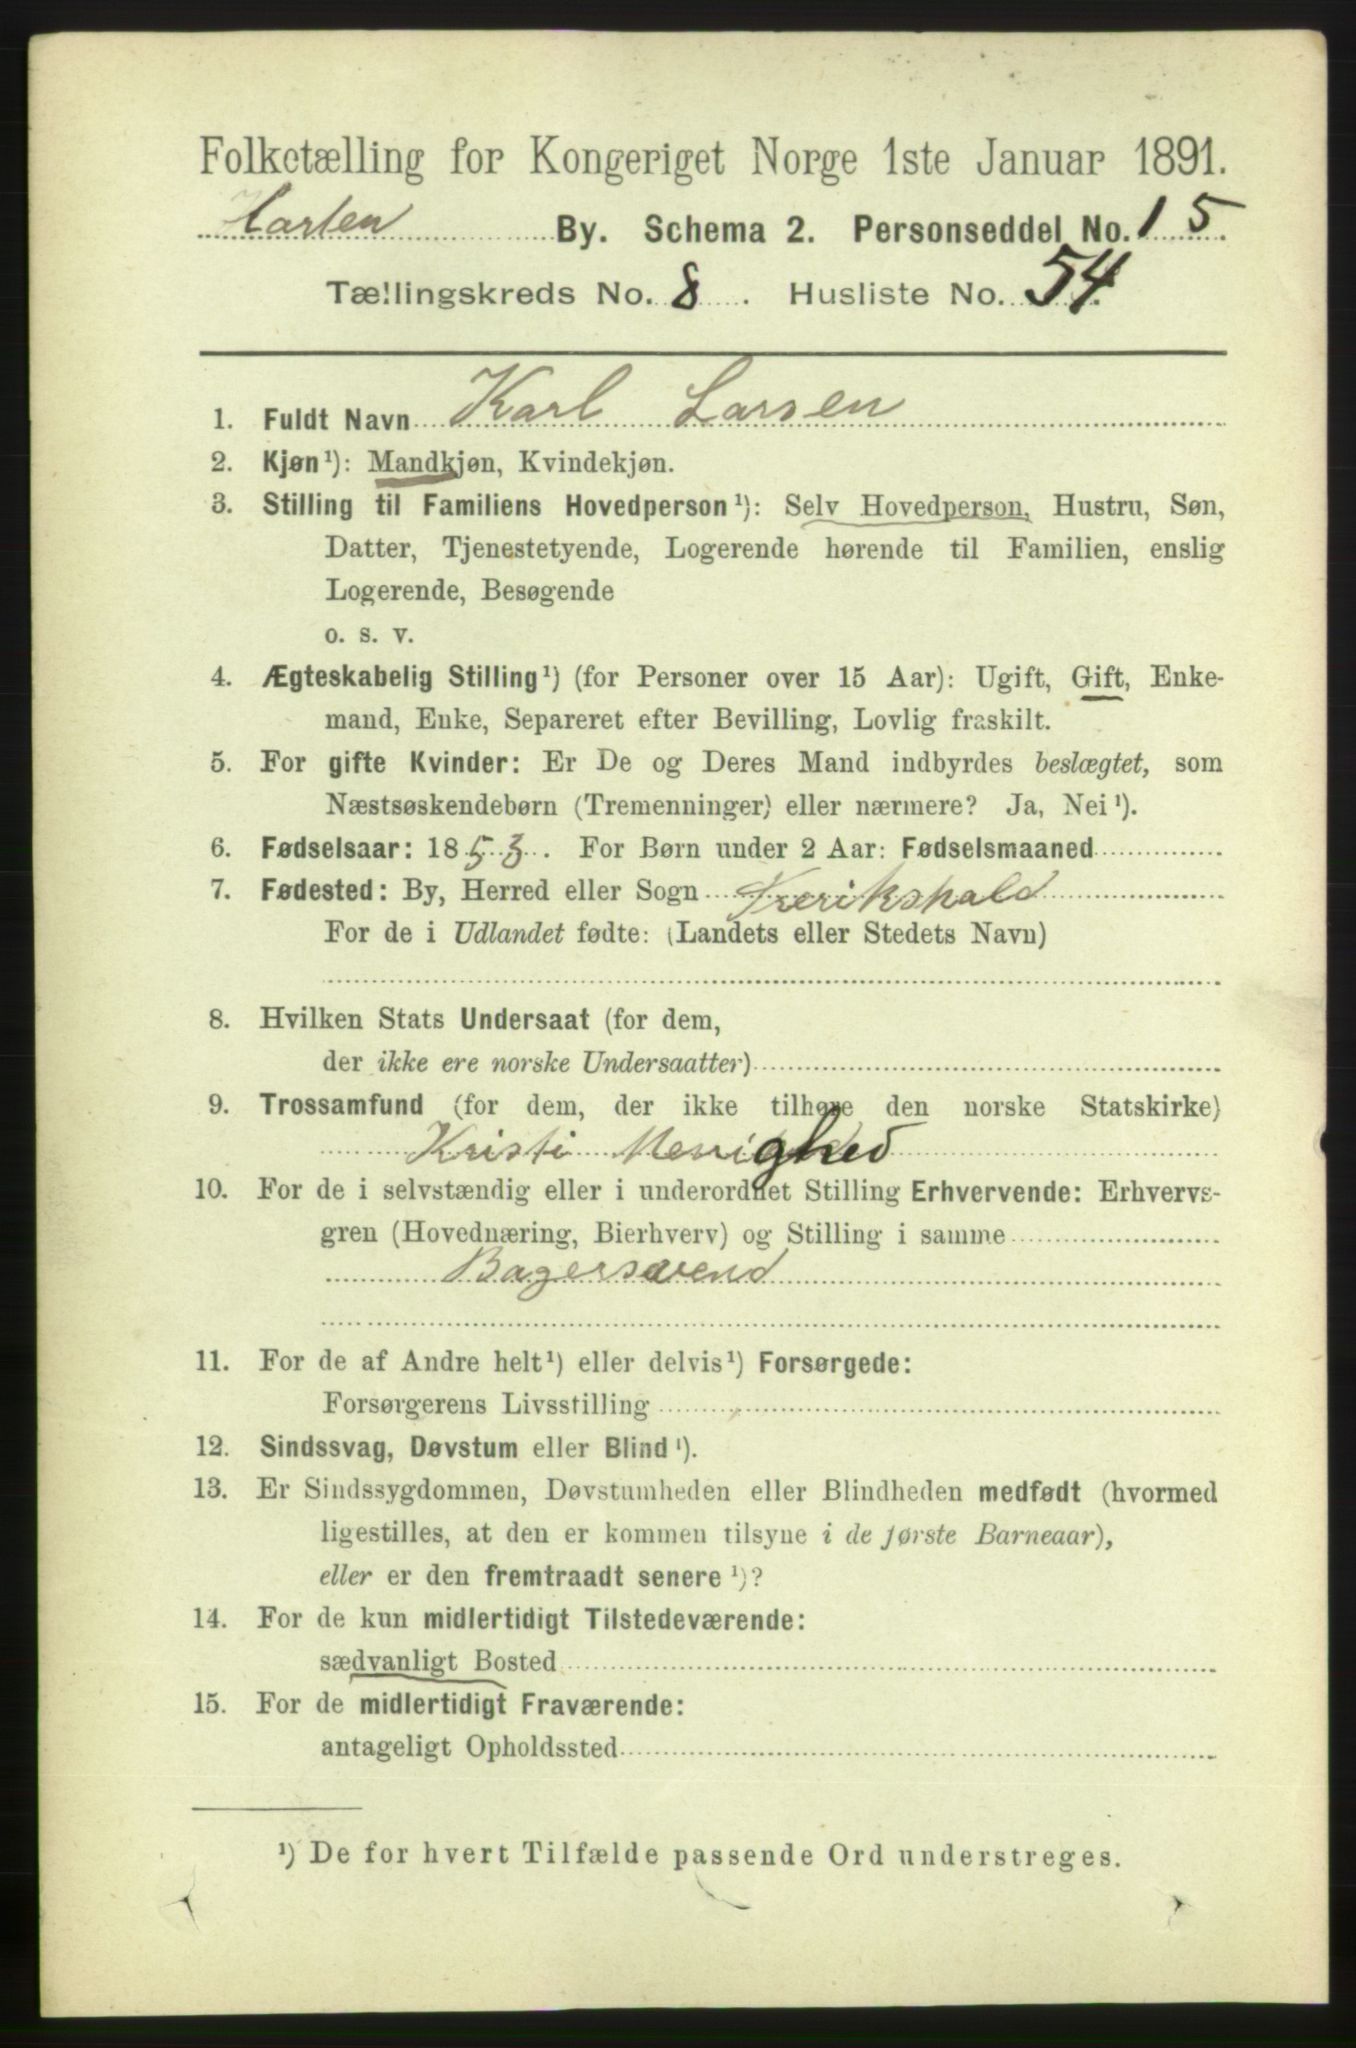 Folketælling for Kongeriget Norge 1ste Januar 1891.
Horten By. Schema 2. Personseddel No. 15
Tællingskreds No. 8. Husliste No. 54.
1. Fuldt Navn Karl Larsen
2. Kjøn¹): Mandkjøn, Kvindekjøn.
3. Stilling til Familiens Hovedperson¹): Selv Hovedperson, Hustru, Søn,
Datter, Tjenestetyende, Logerende hørende til Familien, enslig
Logerende, Besøgende
o. s. v.
4. Ægteskabelig Stilling¹) (for Personer over 15 Aar): Ugift, Gift, Enke-
mand, Enke, Separeret efter Bevilling, Lovlig fraskilt.
5. For gifte Kvinder: Er De og Deres Mand indbyrdes beslægtet, som
Næstsøskendebørn (Tremenninger) eller nærmere? Ja, Nei¹).
6. Fødselsaar: 1853. For Børn under 2 Aar: Fødselsmaaned
7. Fødested: By, Herred eller Sogn Frerikshald
For de i Udlandet fødte: (Landets eller Stedets Navn)
8. Hvilken Stats Undersaat (for dem,
der ikke ere norske Undersaatter)
9. Trossamfund (for dem, der ikke tilhøre den norske Statskirke)
Kristi Menighed
10. For de i selvstændig eller i underordnet Stilling Erhvervende: Erhvervs-
gren (Hovednæring, Bierhverv) og Stilling i samme
Bagersvend
11. For de af Andre helt¹) eller delvis¹) Forsørgede:
Forsørgerens Livsstilling
12. Sindssvag, Døvstum eller Blind¹).
13. Er Sindssygdommen, Døvstumheden eller Blindheden medfødt (hvormed
ligestilles, at den er kommen tilsyne i de første Barneaar),
eller er den fremtraadt senere¹)?
14. For de kun midlertidigt Tilstedeværende:
sædvanligt Bosted
15. For de midlertidigt Fraværende:
antageligt Opholdssted
¹) De for hvert Tilfælde passende Ord understreges.